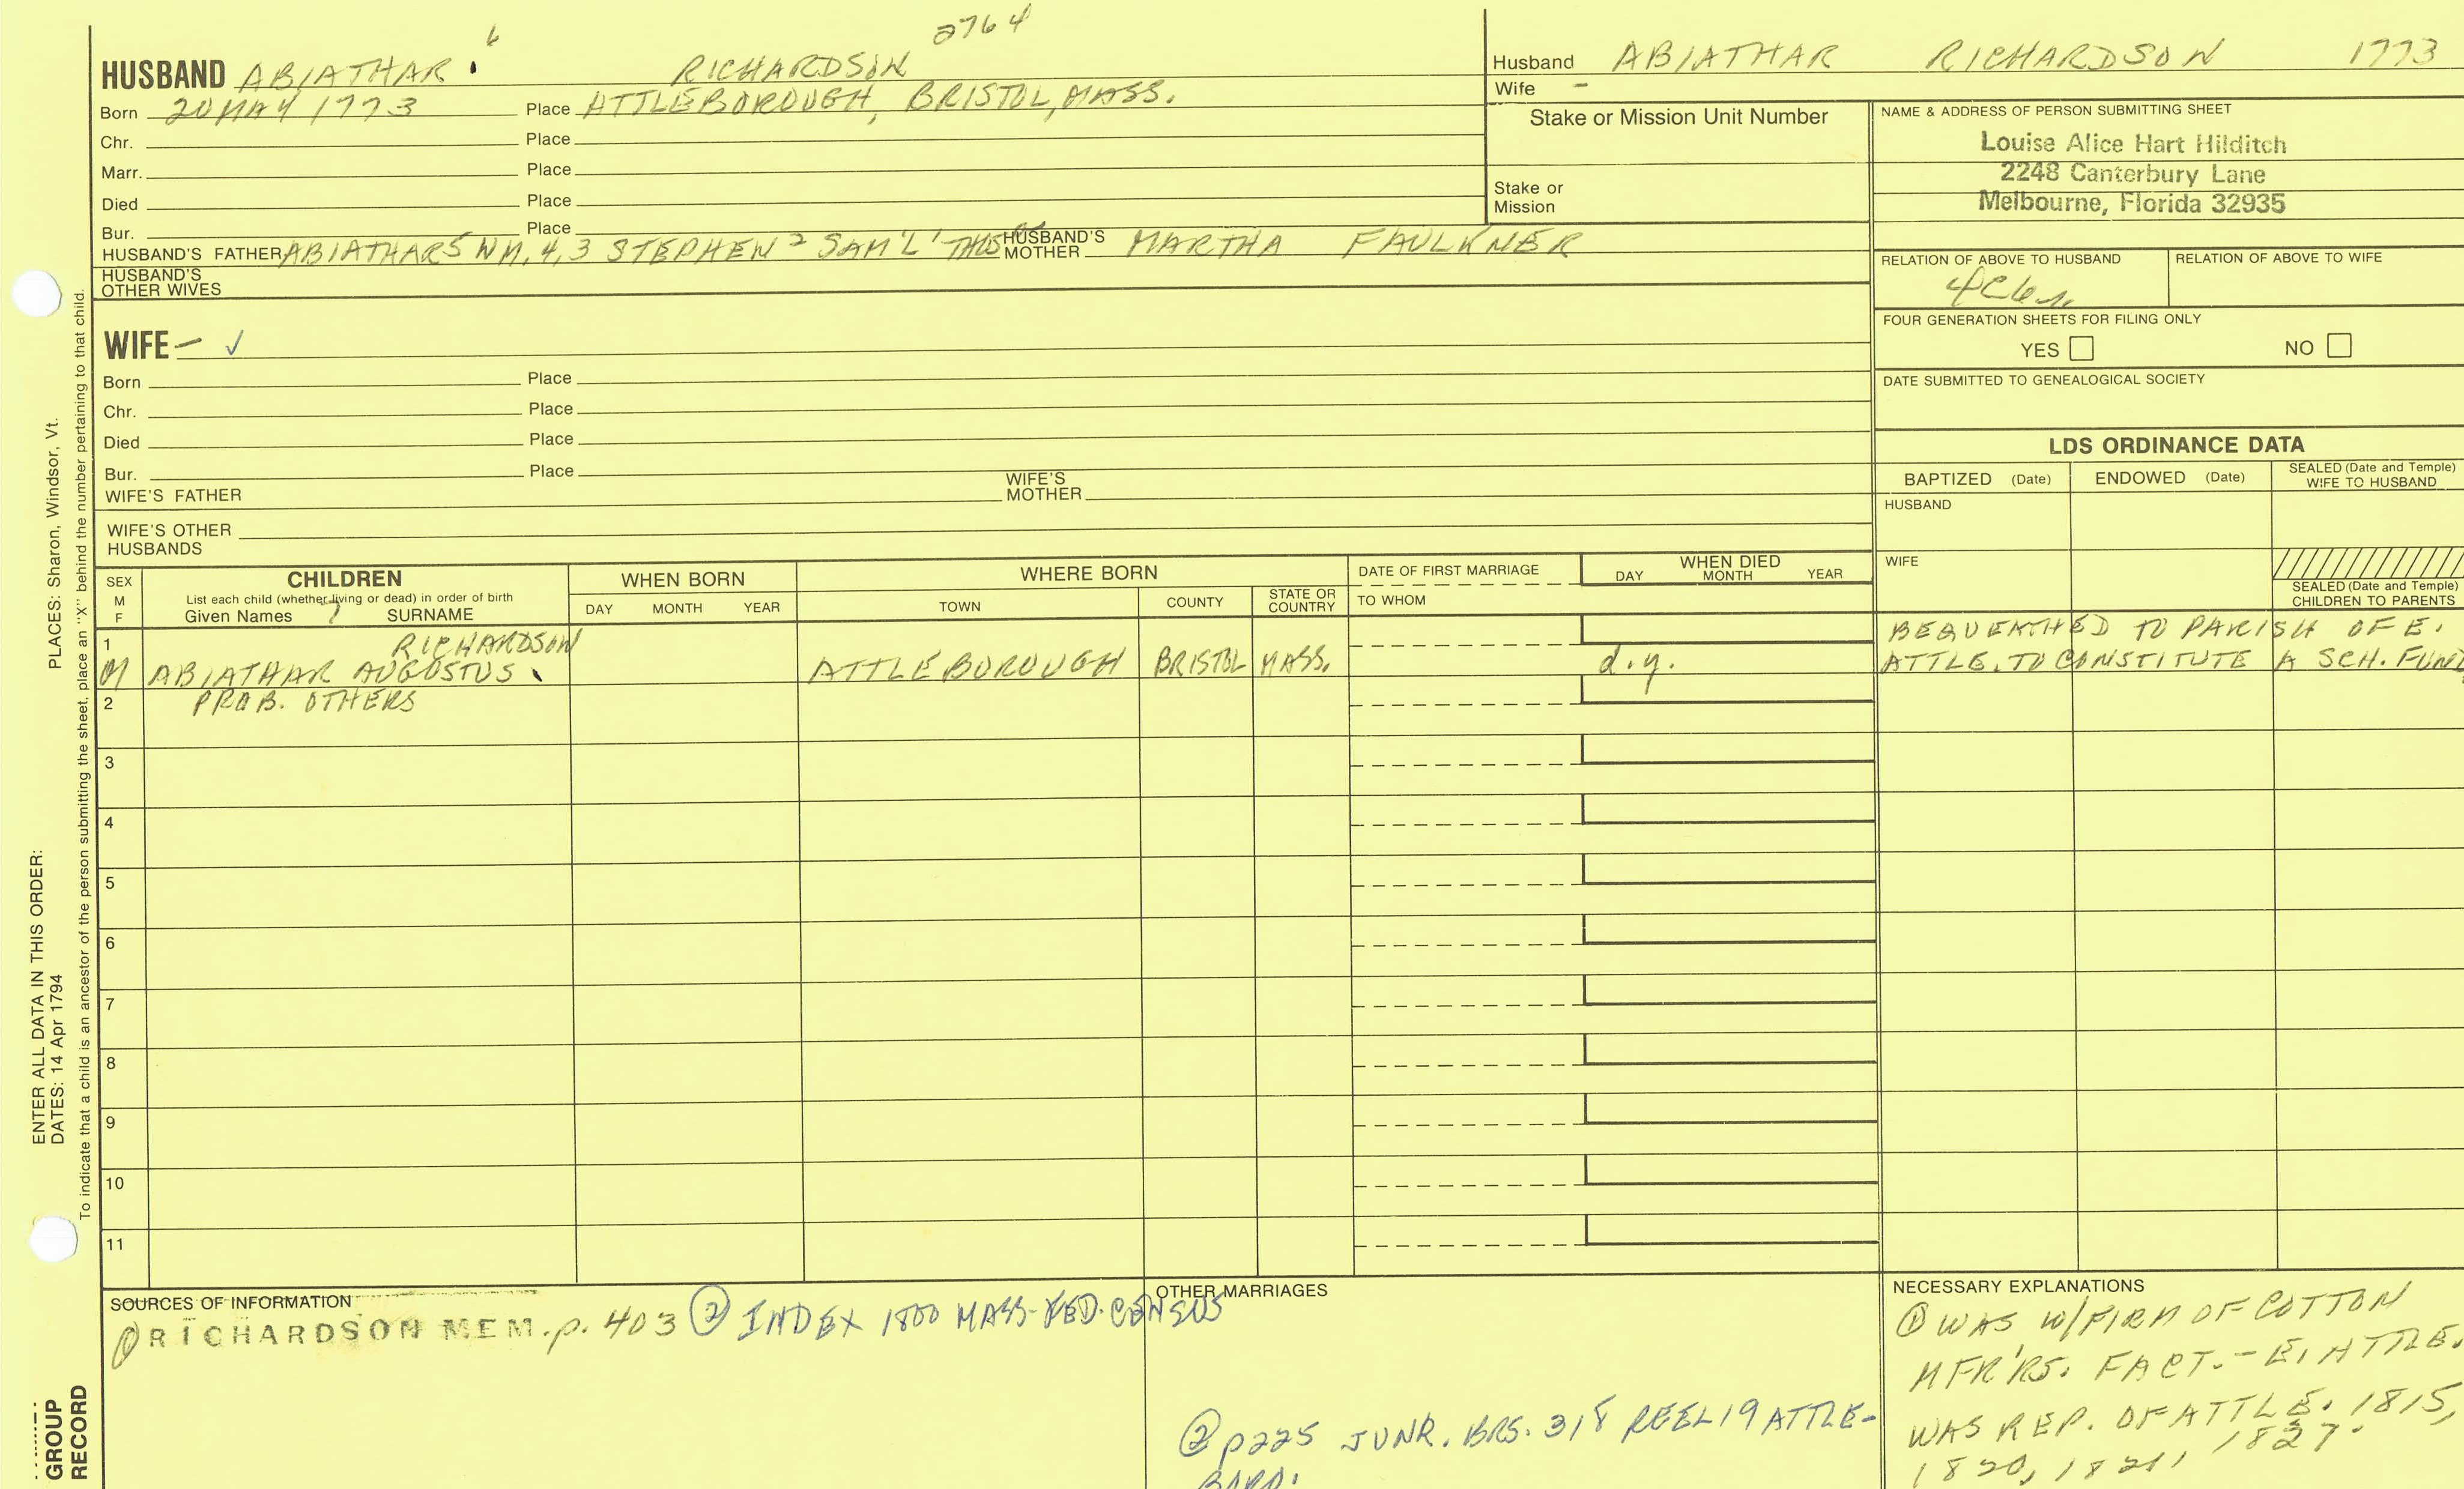 6
2764
HUSBAND ABIATHAR RICHARDSON
Born 20 MAY 1773 Place ATTLEBOROUGH, BRISTOL, MASS.
Chr. Place
Marr. Place
Died Place
Bur. Place
HUSBAND'S FATHER ABIATHAR 5 WM. 4, 3 STEPHEN 2 SAM'L' THOS HUSBAND'S MOTHER MARTHA FAULKNER
HUSBAND'S
OTHER WIVES
WIFE – ✓
Born Place
Chr. Place
Died Place
Bur. Place
WIFE'S FATHER WIFE'S MOTHER
WIFE'S OTHER
HUSBANDS
Husband ABIATHAR RICHARDSON 1773
Wife –
Stake or Mission Unit Number
Stake or
Mission
NAME & ADDRESS OF PERSON SUBMITTING SHEET
Louise Alice Hart Hilditch
2248 Canterbury Lane
Melbourne, Florida 32935
RELATION OF ABOVE TO HUSBAND RELATION OF ABOVE TO WIFE
FOUR GENERATION SHEETS FOR FILING ONLY
YES NO
DATE SUBMITTED TO GENEALOGICAL SOCIETY
LDS ORDINANCE DATA
BAPTIZED (Date) ENDOWED (Date) SEALED (Date and Temple) WIFE TO HUSBAND
HUSBAND
WIFE
SEALED (Date and Temple)
CHILDREN TO PARENTS
SEX
M
F
CHILDREN
List each child (whether living or dead) in order of birth
Given Names 7 SURNAME
WHEN BORN
DAY MONTH YEAR
WHERE BORN
TOWN COUNTY STATE OR COUNTRY
DATE OF FIRST MARRIAGE
TO WHOM
WHEN DIED
DAY MONTH YEAR
1 RICHARDSON BEQUEATHED TO PARISH OF E.
M ABIATHAR AUGUSTUS ATTLEBOROUGH BRISTOL MASS. d.y. ATTLE. TO CONSTITUTE A SCH. FUND
2 PROB. OTHERS
3
4
5
6
7
8
9
10
11
SOURCES OF INFORMATION
① RICHARDSON MEM. p. 403 ② INDEX 1800 MASS-FED. CENSUS
OTHER MARRIAGES
② p225 JUNR. BRS. 318 REEL 19 ATTLE-
BORO.
NECESSARY EXPLANATIONS
① WAS W/FIRM OF COTTON
MFR'RS. FACT. – E. ATTLE.
WAS REP. OF ATTLE. 1815,
1820, 1821, 1827.
PLACES: Sharon, Windsor, Vt.
ENTER ALL DATA IN THIS ORDER:
DATES: 14 Apr 1794
To indicate that a child is an ancestor of the person submitting the sheet, place an "X" behind the number pertaining to that child.
GROUP
RECORD